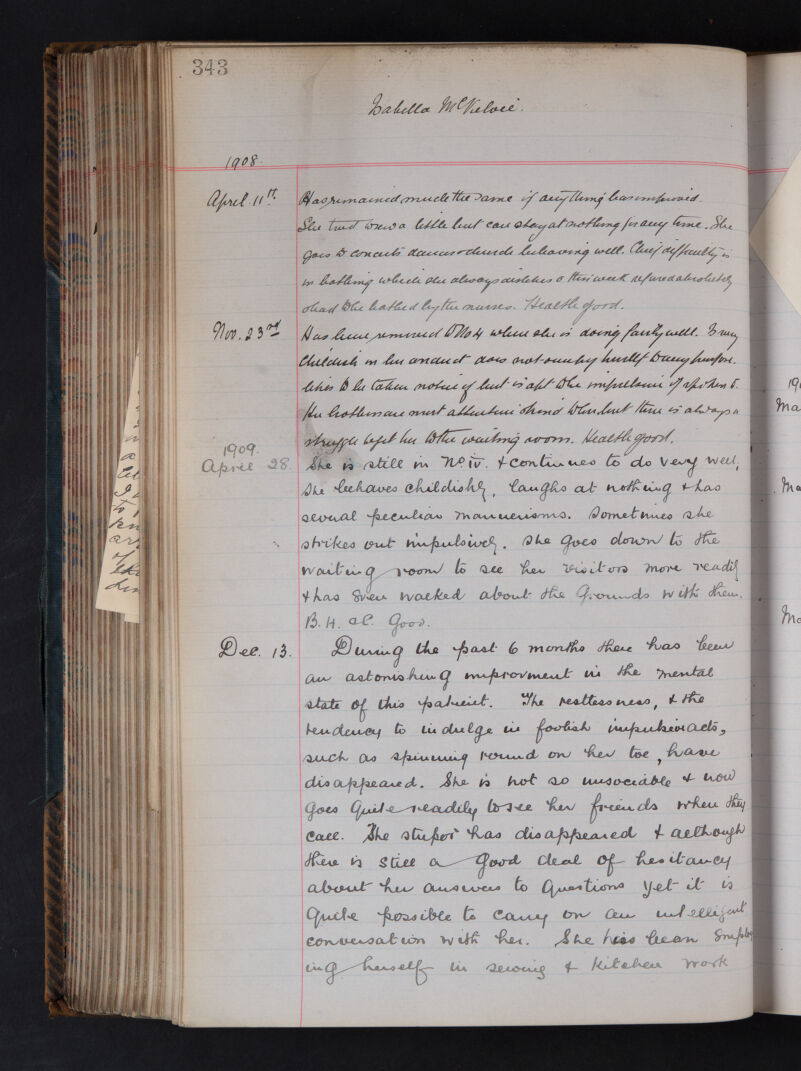 343
Isabella McKelvie.
1908
April 11th. Has remained much the same if anything has improved.
She tried to sew a little but can stay at nothing for any time. She
goes to concerts dances & church behaving well. Chief difficulty is
in bathing which she always dislikes & this week refused absolutely
& had to be bathed by the nurses. Health good.
Nov. 23rd Has been removed to No 4 where she is doing fairly well. Is very
Childish in her conduct does not occupy herself to any purpose.
likes to be taken notice of but is apt to be impulsive if spoken to.
Her brothers are most attentive & kind to her but there is always a
struggle to get her to the waiting room. Health good.
1909.
April 28. She is still in No IV. & continues to do very well,
she behaves childishly, laughs at nothing & has
several peculiar mannerisms. Sometimes she
strikes out impulsively. She goes down to the
waiting room to see her visitors more readily
& has even walked about the Grounds with them.
B. H. & C. Good.
Dec. 13. During the past 6 months there has been
an astonishing improvment in the mental
state of this patient. The restlessness, & the
tendency to indulge in foolish impulsive acts,
such as spinning round on her toe, have
disappeared. She is not so unsociable & now
goes quite readily to see her friends when they
call. The stupor has disappeared & although
there is still a good deal of hesitancy
about her answers to Questions yet it is
Quite possible to carry on an intelligent
conversation with her. She has been employ
ing herself in sewing & kitchen work